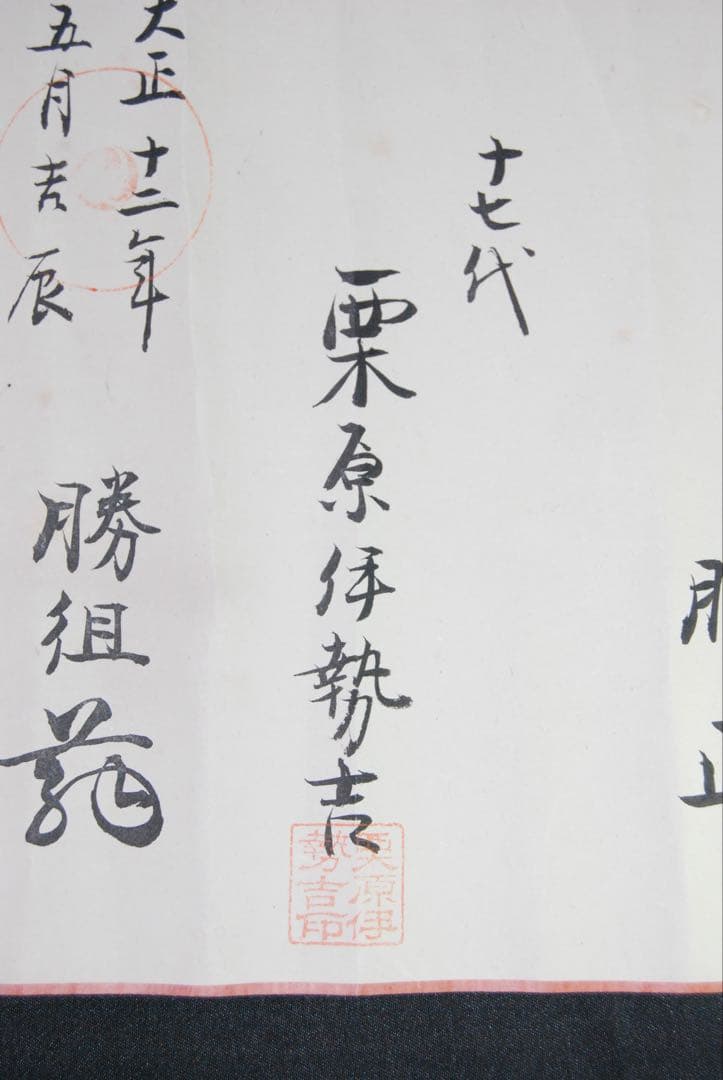 十七代
栗原伊勢吉
栗原伊
勢吉印
大正十二年
五月吉辰
勝組